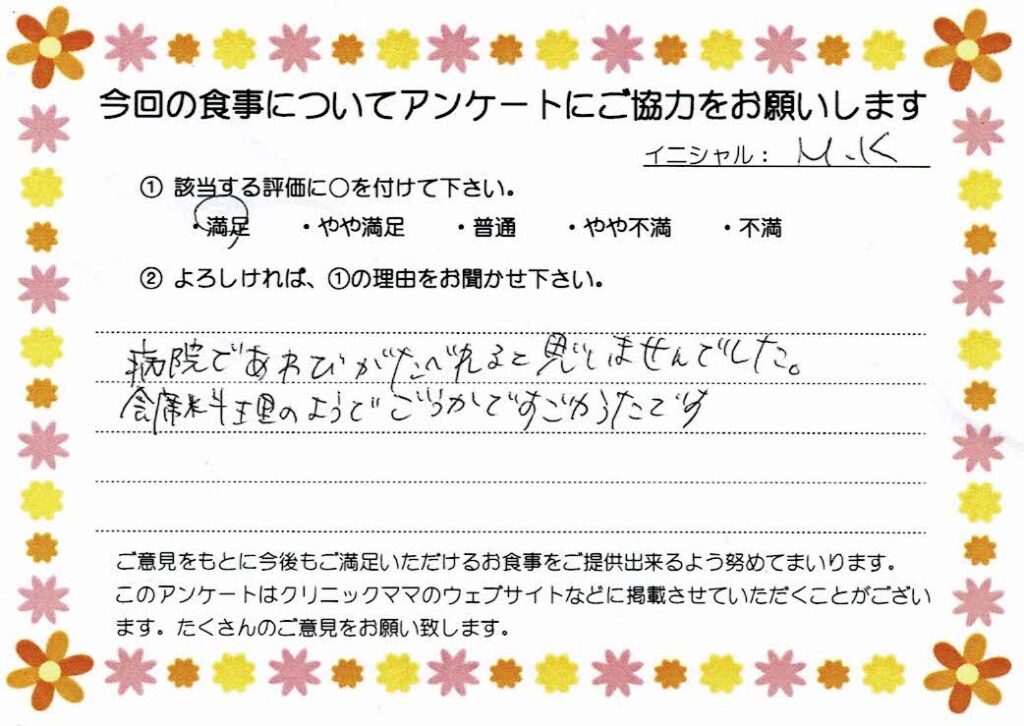 今回の食事についてアンケートにご協力をお願いします
イニシャル： M.K
① 該当する評価に○を付けて下さい。
・満足 ・やや満足 ・普通 ・やや不満 ・不満
② よろしければ、①の理由をお聞かせ下さい。
病院であわびがたべれると思いませんでした。
会席料理のようでごうかですごかったです
ご意見をもとに今後もご満足いただけるお食事をご提供出来るよう努めてまいります。
このアンケートはクリニックママのウェブサイトなどに掲載させていただくことがござい
ます。たくさんのご意見をお願い致します。